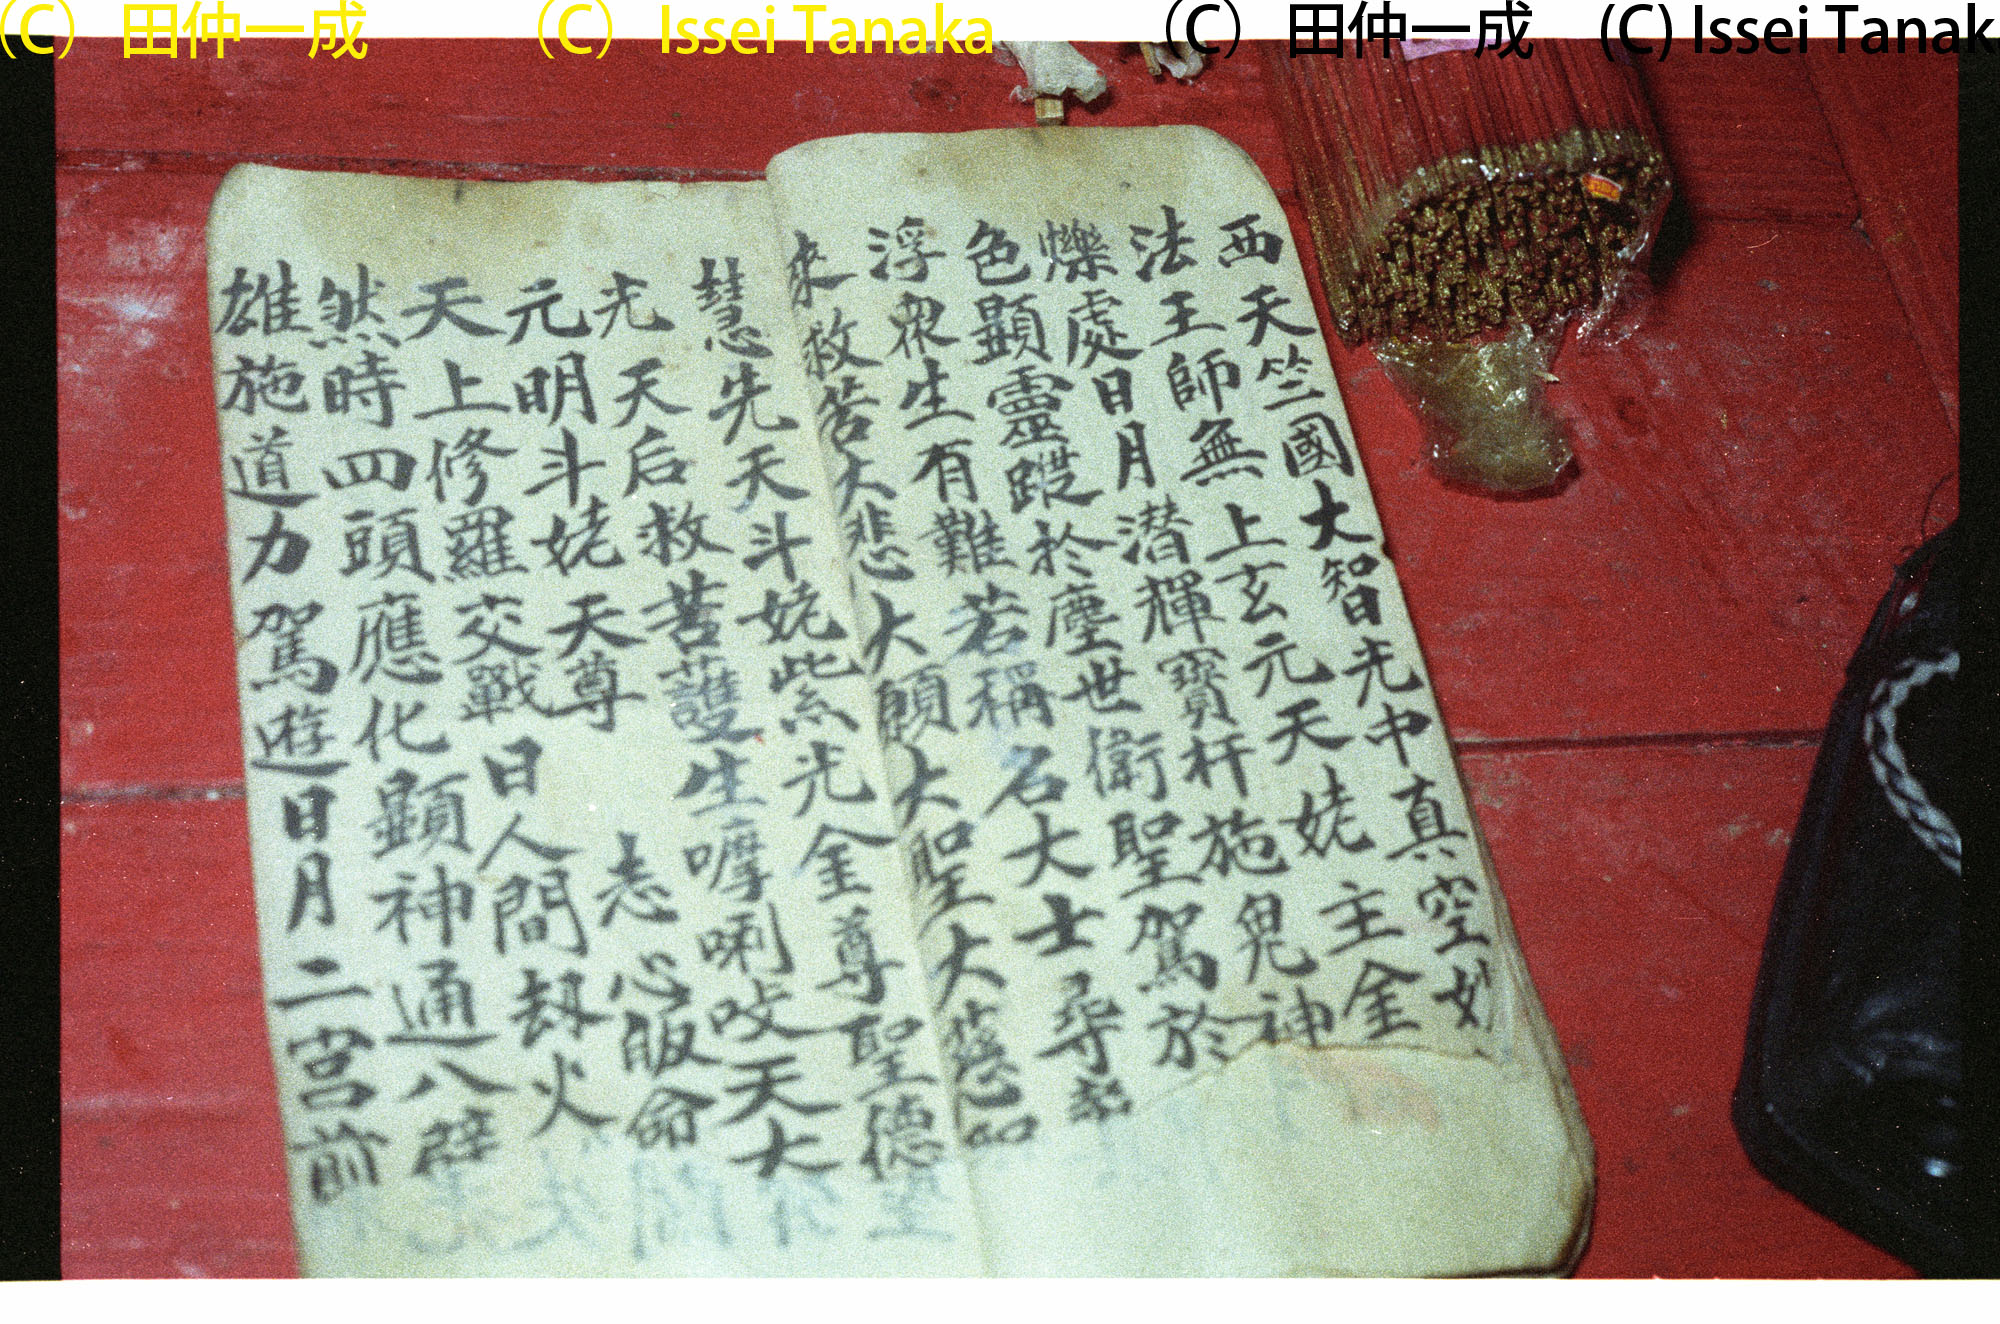 (C) 田仲一成
(C) Issei Tanaka
(C) 田仲一成
(C) Issei Tanak
西天竺國大智光中真空妙
法王師無上玄元天姥主金
爍處日月潛輝寳杆施鬼神
色顯靈蹤於塵世衛聖駕於
浮衆生有難若稱名大士尋聲
來救苦大悲大願大聖大慈
慧先天斗姥紫光金尊聖德
光天后救苦護生嚤唎吱天大
元明斗姥天尊 志心皈命
天上修羅交戰日人間刼火
然時四頭應化顯神通八臂
雄施道力駕遊日月二宮前